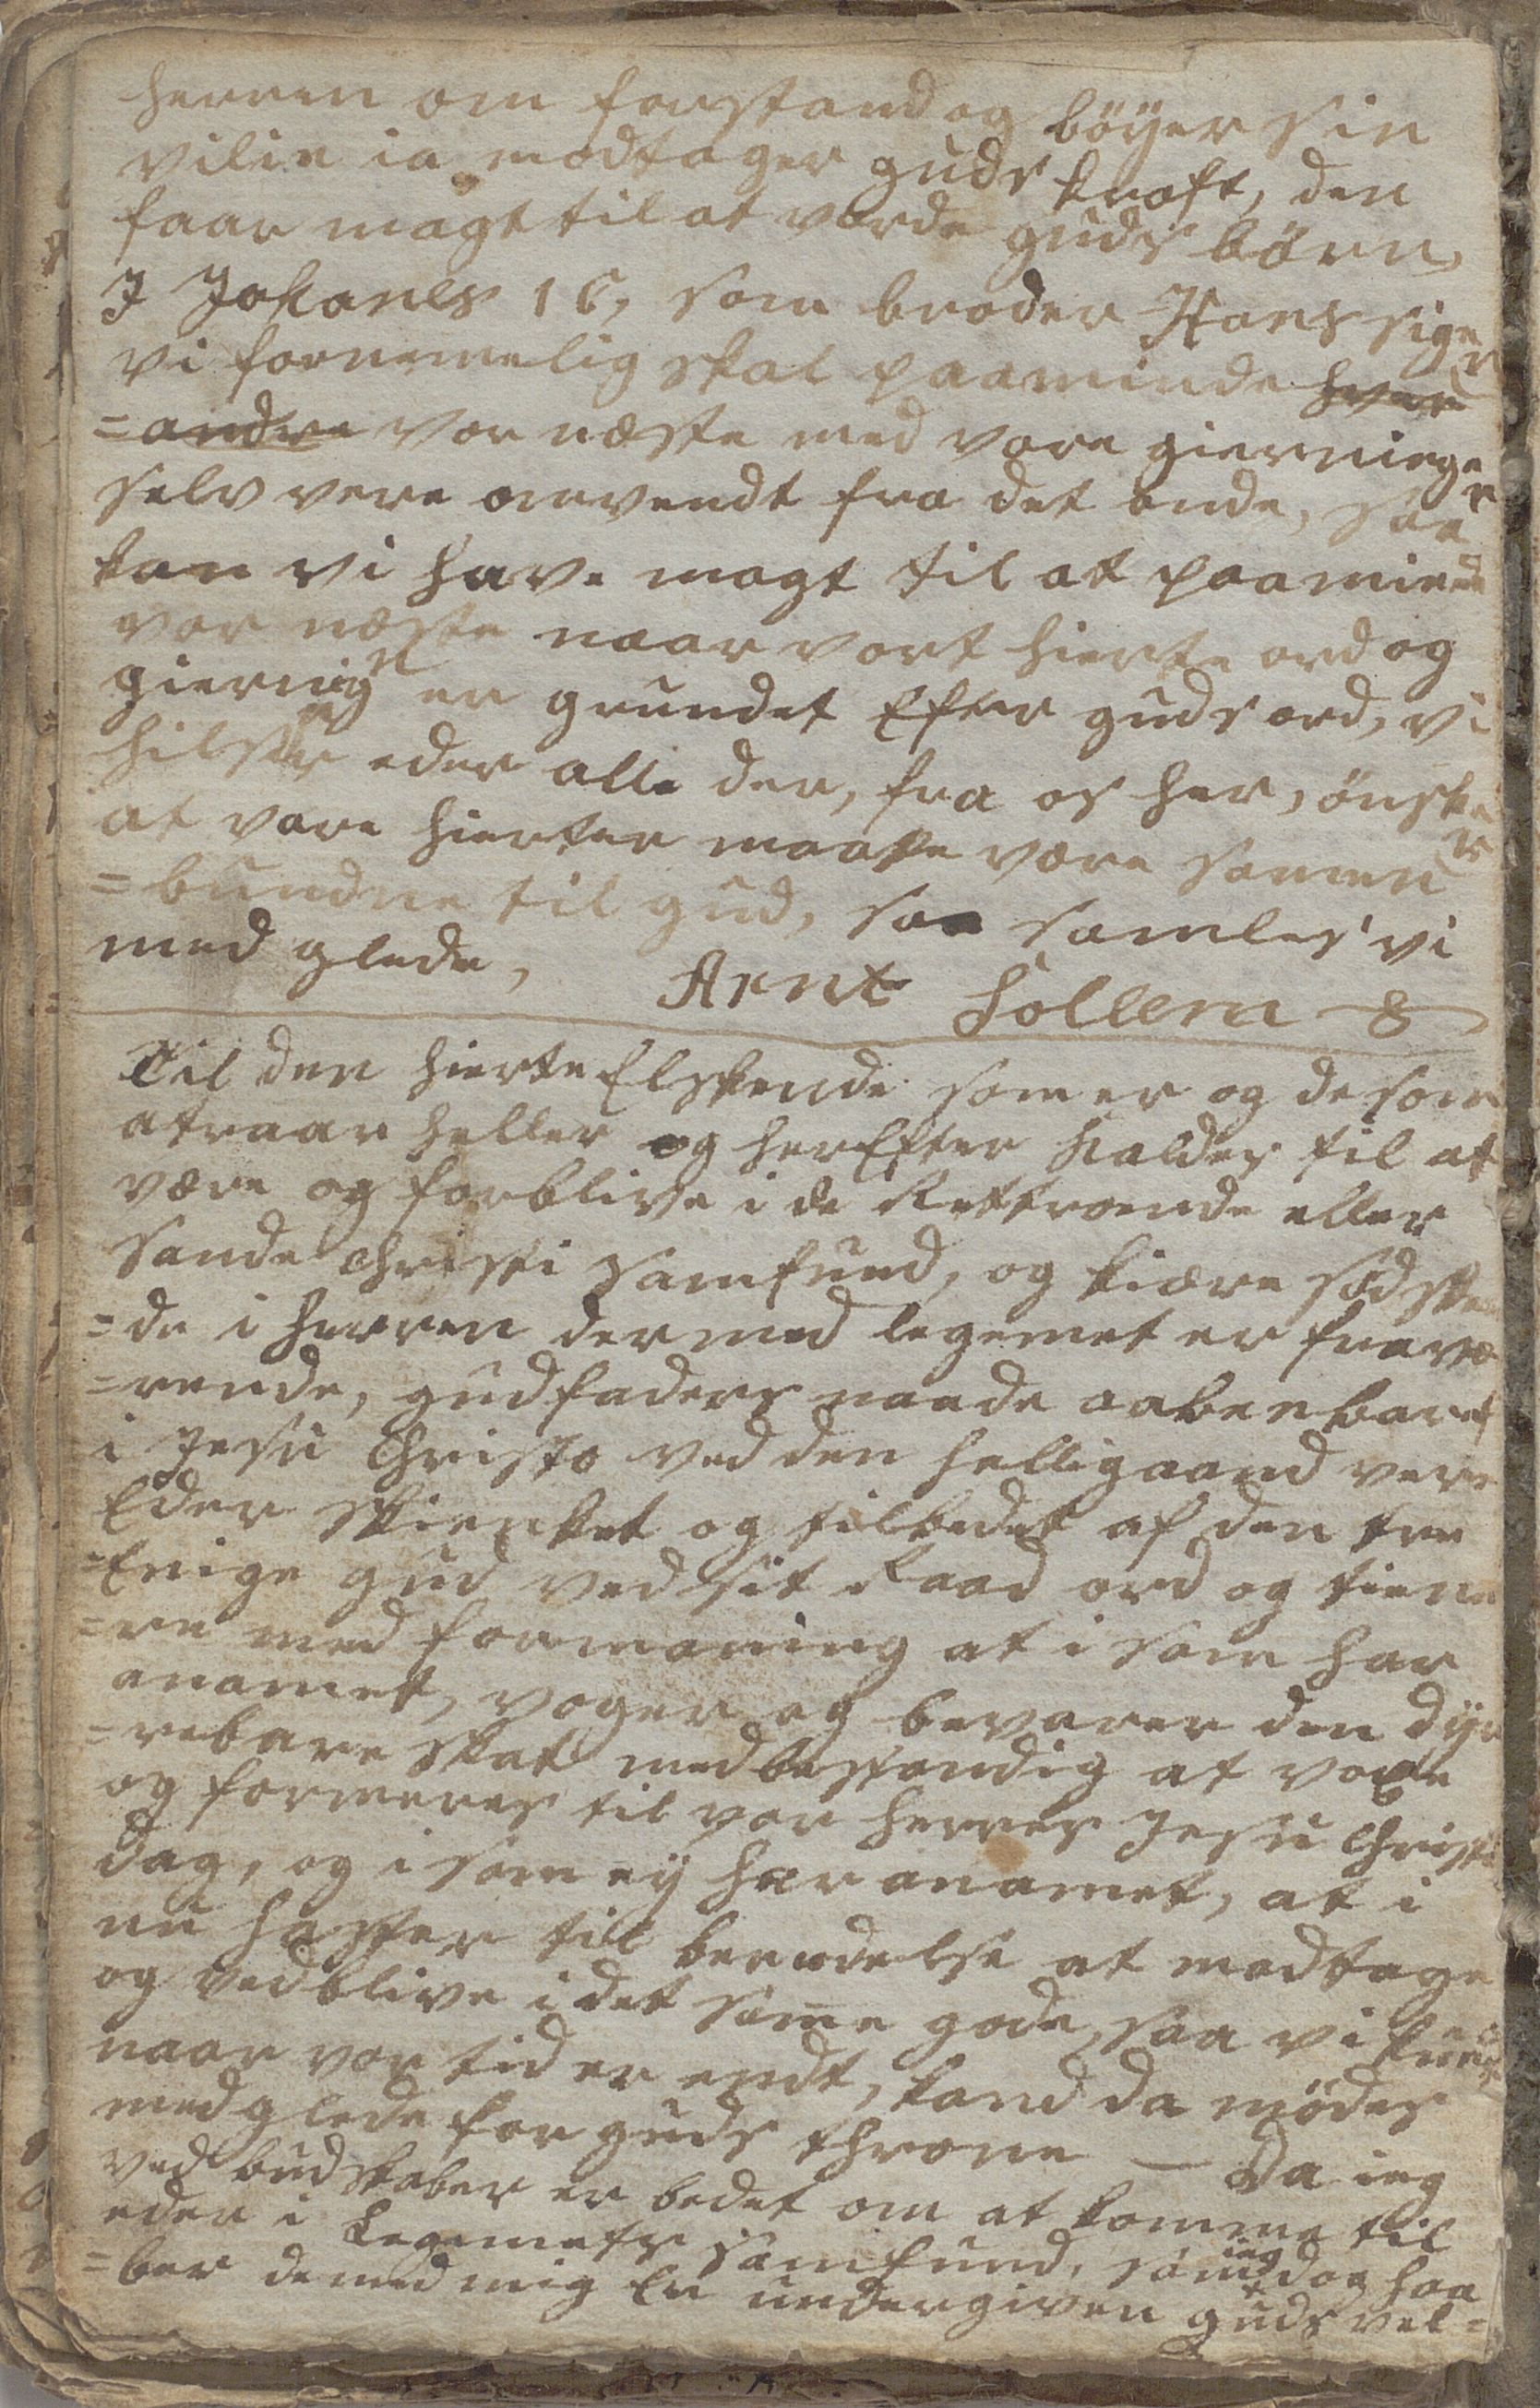 herren om forstand og böÿer sin
vilie ia modtager guds kraft, den
faar magt til at vorde guds börn,
I Johanes 16, som broder Hans siger
vi fornemelig skal paaminde hver
=andre vor næste med vore gierninger
selv vere omvendt fra det onde, saa
kan vi have magt til at paaminde
vor næste naar vort hierte ord og
gierning er grundet Efter guds ord, vi
hilser eder alle der, fra os her, önsker
at vore hierter maatte være samen
=bundne til gud, saa samles vi
med glede, Arnt Sollem
Til den hierte Elskende som er og de som
atraar heller og her Efter Kaldes til at
være og forblive i de Rettroende eller
sande Christi samfund, og kiære södsken
=de i herren der med legemet er fravæ
=rende, gud faders naade aabenbaret
i Jesu Christo ved den helligaand vere
Eder skienket og tilbedet af den tre
=Enige gud ved sit Raad ord og tiene
=re med formaning at i som har
anamet, voger og bevarer den dÿr
=rebare skat med bestandig at voxe
og formeres til vor herres Jesu Christi
dag, og i som eÿ har anamet, at i
nu haster til beredelse at modtage
og vedblive i det same gode, saa vi
naar vor tid er endt, kand da mödes
med glede for guds throne — Da ieg
ved budskaber er bedet om at komme til
eder i Legemets samfund, som ieg dog haa
=ber de med mig Er undergiven guds vel=